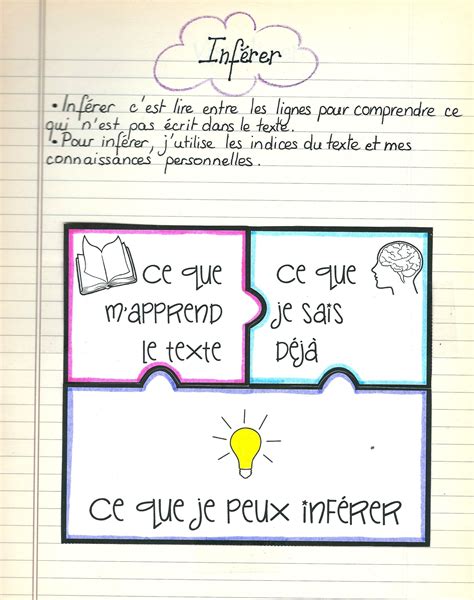 Inférer
• Inférer c'est lire entre les lignes pour comprendre ce
qui n'est pas écrit dans le texte.
• Pour inférer, j'utilise les indices du texte et mes
connaissances personnelles.
Ce que
m'apprend
le texte
Ce que
je sais
déjà
Ce que je peux inférer